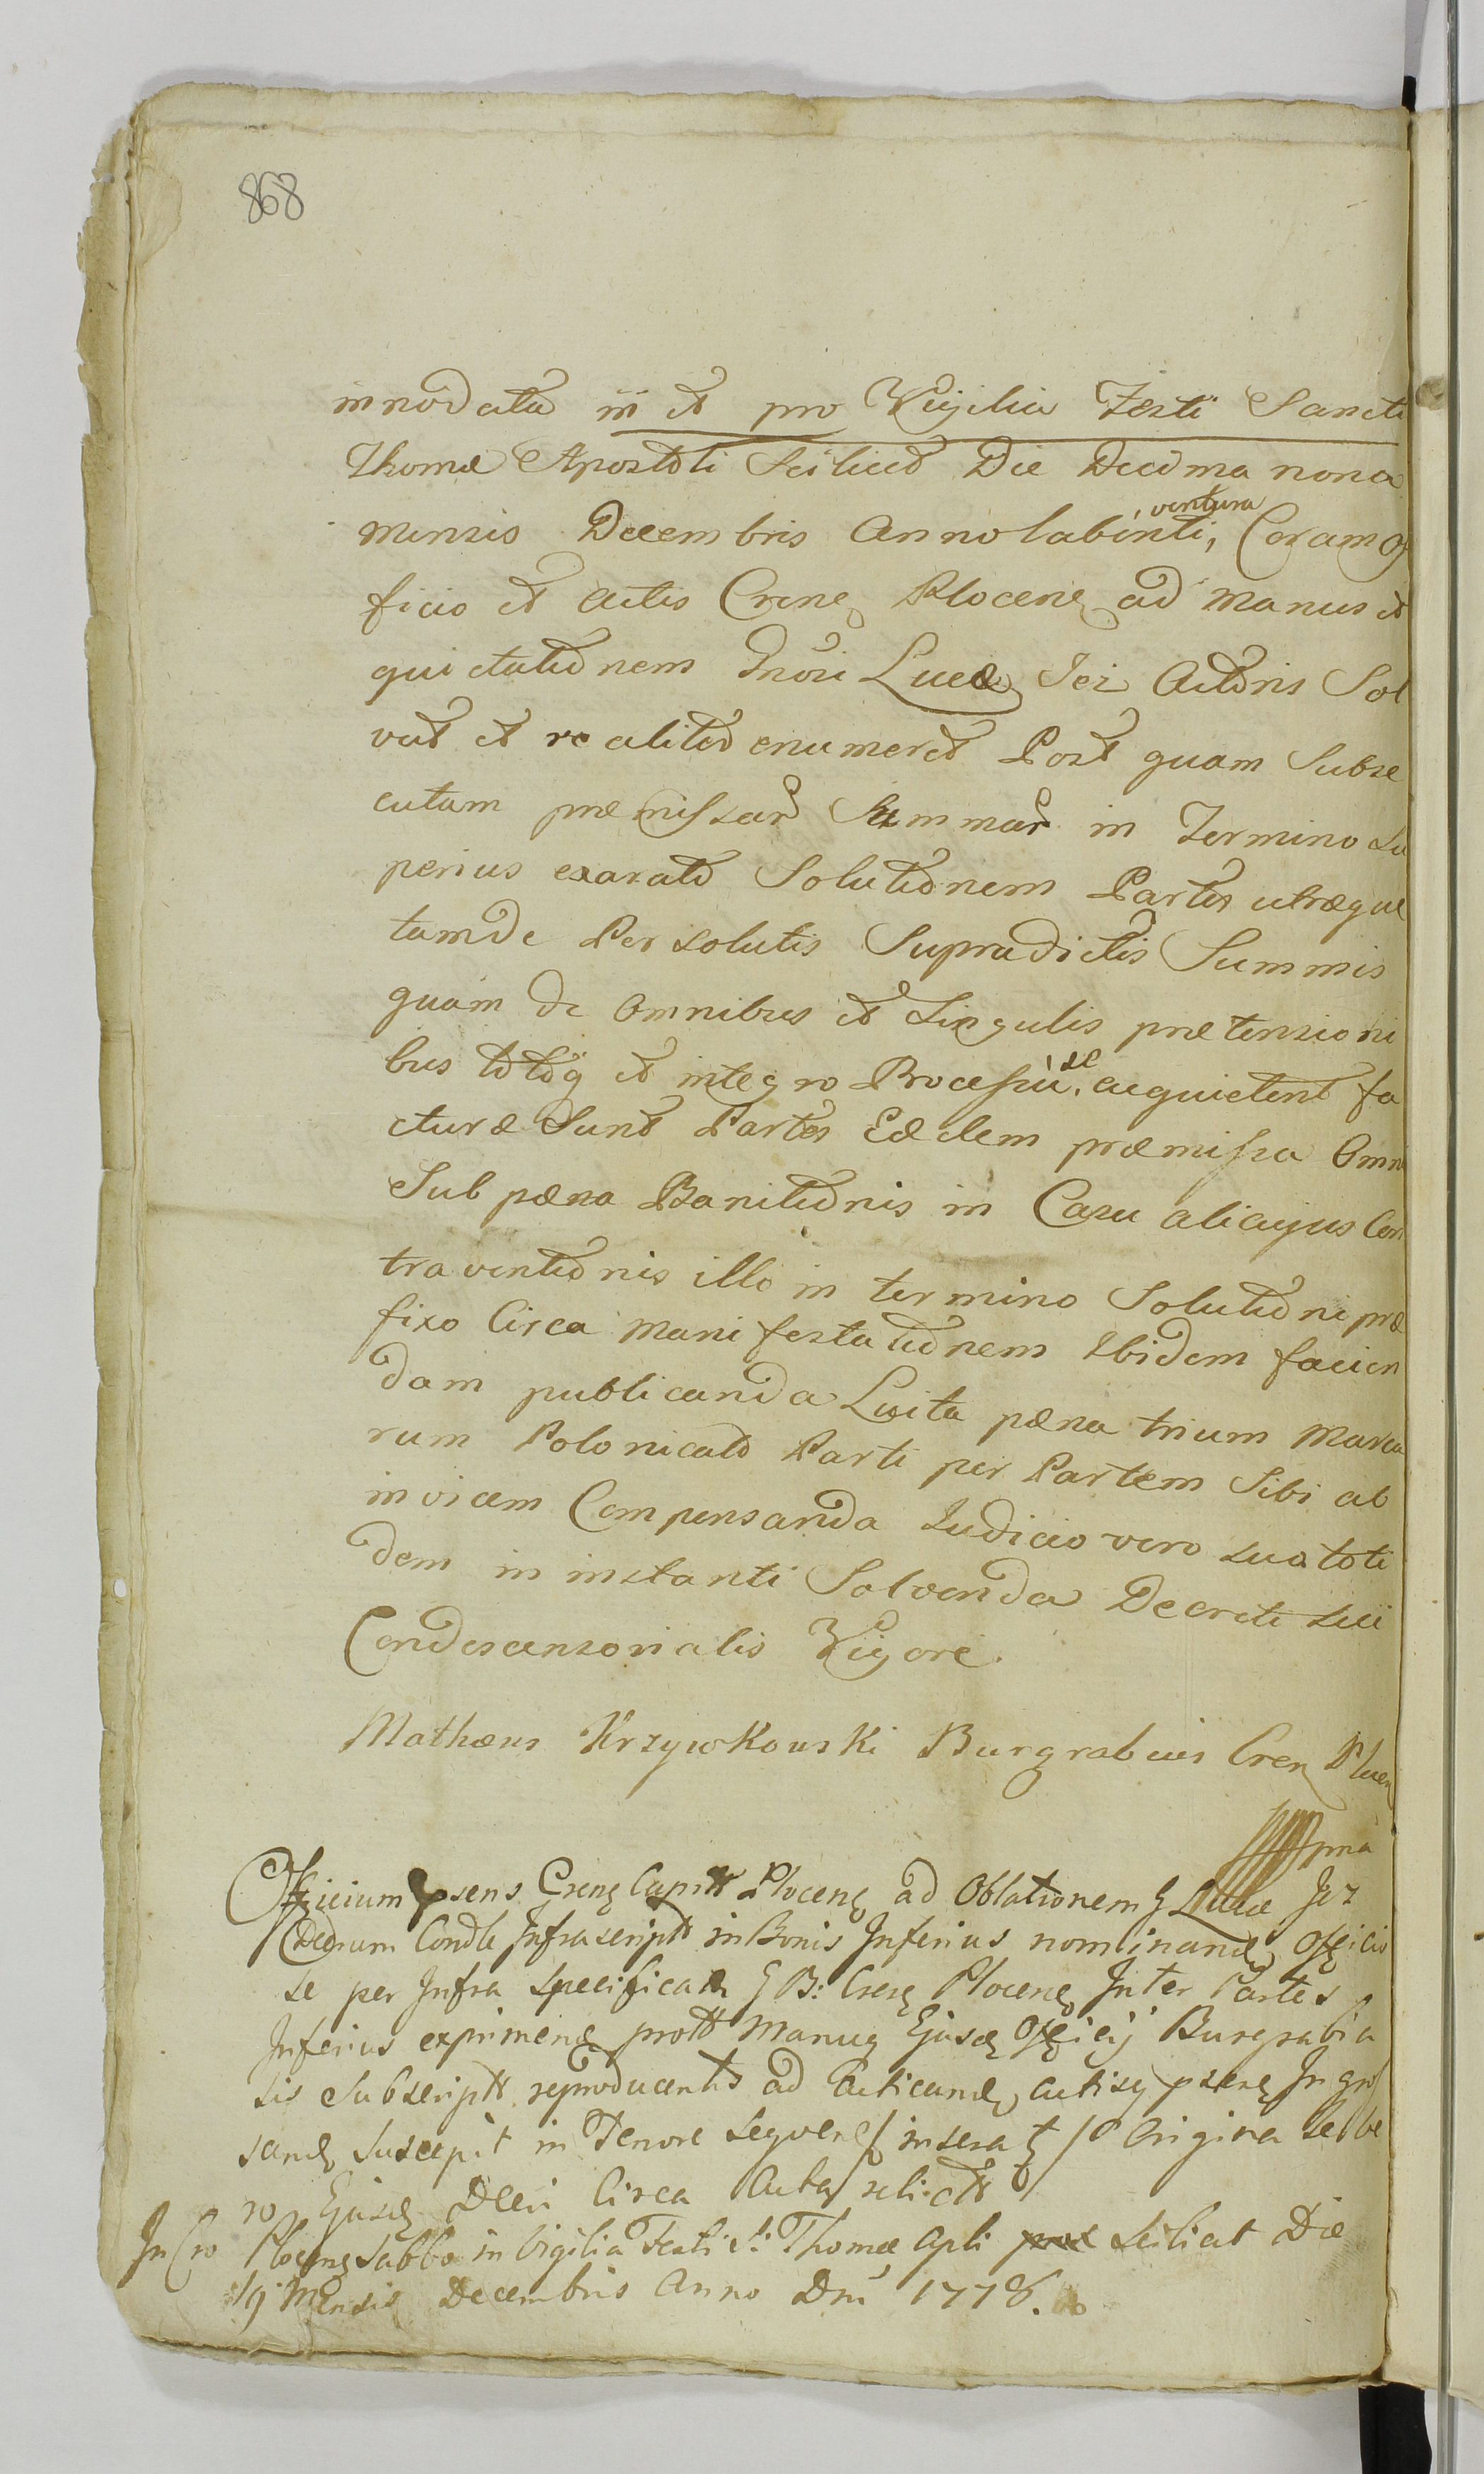 868
innodata in et pro Vigilia Festi Sancti
Thomæ Apostoli Scilicet Die Decima nona
mensis Decembris Anno labenti, ventura Coram Of
ficio et Actis Crens Plocens ad manus et
quietationem Lucæ Actoris Sol
vat et realiter enumeret Post quam Subse
cutam præmissar Summar in Termino su
perius exarato Solutionem Partes utræque
tam de Persolutis Supradictis Summis
quam de Omnibus et Singulis prætensioni
bus totoq et integro Processu, se acquietent fa
cturæ Sunt Partes Eædem præmissa Omni
Sub pæna Banitionis in Casu alicujus Con
traventionis illo in termino Solutioni præ
fixo Circa manifestationem Ibidem facien
dam publicanda Luita pæna trium Marca
rum Polonicalo Parti per Partem Sibi ab
invicem Compensanda Judicio vero sua toti
dem in instanti Solvenda Decreti sui
Condescensorialis Vigore.
Mathæus Krzywkowski Burgrabius Cren Plocen
mpria
Officium psens Crens Capit Plocens ad Oblationem G Lucæ
Condle Infrascript in Bonis Inferius nominand Officio
se per Infra Specificat G B: Crens Plocens Inter Partes
Inferius expriment Manu Ejusd Officij Burgrabia
sis Subscript reproducentis ad Acticand Actisq psens Ingro
sand Suscepit in Tenore sequen insera Origina
ro Ejusd Dti Circa Acta relict
In Cro Plocens Sabbo in Vigilia Festi S: Thomæ Apli Scilicet Die
19 Mensis Decembris Anno Dni 1778.